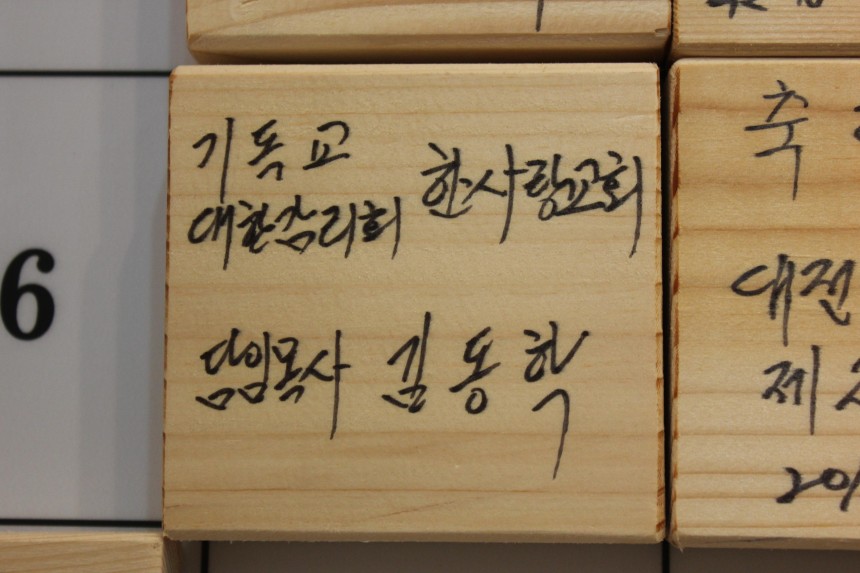 6
기독교
대한감리회 한사랑교회
담임목사 김동학
축
대전
제2
201